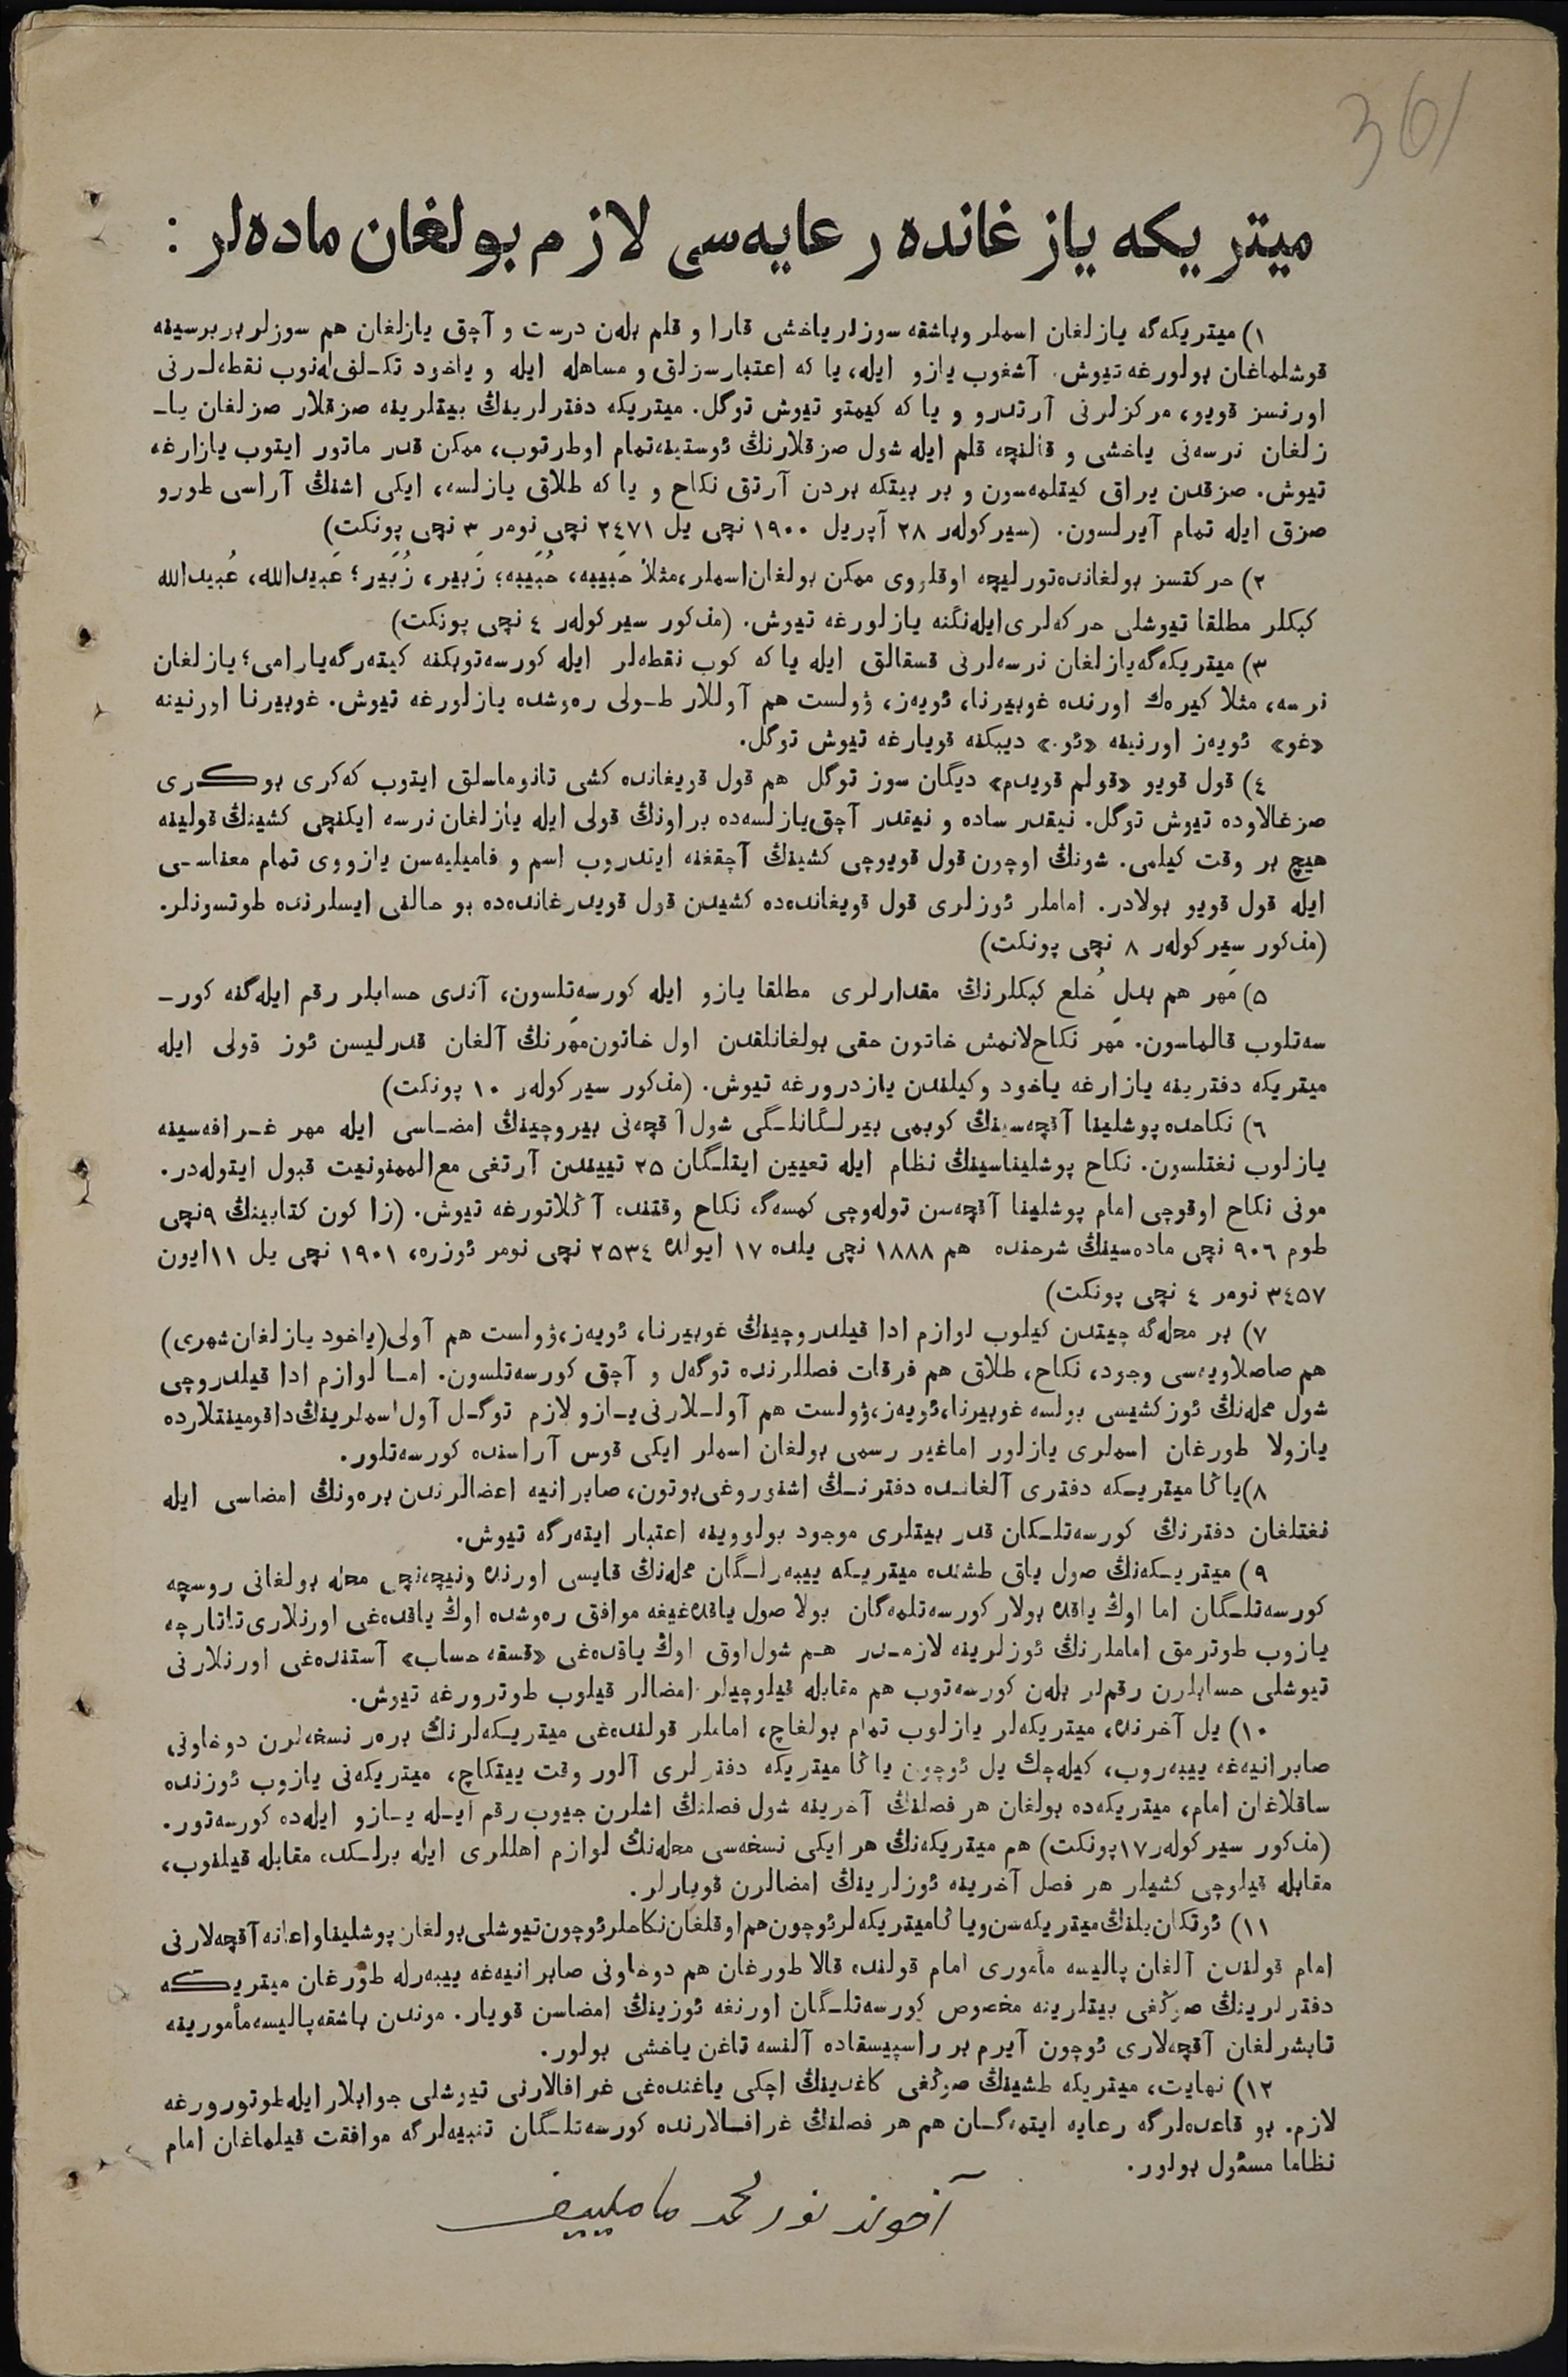 361
ميتريكه يازغانده رعايه‌سى لازم بولغان ماده‌لر :
١) ميتريكه‌گه يازلغان اسملر وباشقه سوزلرياخشى قارا و قلم بله‌ن درست و آچق يازلغان هم سوزلربربرسينه
قوشلماغان بولورغه تيوش. آشغوب يازو ايله، يا كه اعتبارسزلق و مساهله ايله و ياخود تكـلفى‌له‌نوب نقطه‌لـرنى
اورنسز قويو، مركزلرنى آرتدرو و يا كه كيمتو تيوش توگل. ميتريكه دفترلرينڭ بيتلرينه صزقلار صزلغان يا-
زلغان نرسه‌نى ياخشى و قالنچه قلم ايله شول صزقلارنڭ ئوستينه‌تمام اوطرتوب، ممكن قدر ماتور ايتوب يازارغه
تيوش. صزقدن يراق كيتلمه‌سون و بر بيتكه بردن آرتق نكاح و يا كه طلاق يازلسه، ايكى اشنڭ آراسى طورو
صزق ايله تمام آيرلسون. (سيركوله‌ر ٢٨ آپريل ١٩٠٠ نچى يل ٢٤٧١ نچى نومر ٣ نچى پونكت)
٢) حركتسز بولغانده‌تورليچه اوقلووى ممكن بولغان‌اسملر،مثلا حَبيبه، حُبَيبه؛ زَبير، زُبَير؛ عَبيدالله، عُبيدالله
كبكلر مطلقا تيوشلى حركه‌لرى‌ايله‌نگنه يازلورغه تيوش. (مذكور سيركوله‌ر ٤ نچى پونكت)
٣) ميتريكه‌گه‌يازلغان نرسه‌لرنى قسقالق ايله يا كه كوب نقطه‌لر ايله كورسه‌توبكنه كيته‌رگه‌يارامى؛ يازلغان
نرسه، مثلا كيره‌ك اورنده غوبيرنا، ئويه‌ز، ۋولست هم آوللار طـولى ره‌وشده يازلورغه تيوش. غوبيرنا اورنينه
«غو» ئويه‌ز اورنينه «ئو.» ديبكنه قويارغه تيوش توگل.
٤) قول قويو «قولم قويدم» ديگان سوز توگل هم قول قويغانده كشى تانوماسلق ايتوب كه‌كرى بوكرى
صزغالاوده تيوش توگل. نيقدر ساده و نيقدر آچق‌يازلسه‌ده براونڭ قولى ايله يازلغان نرسه ايكنچى كشينڭ قولينه
هيچ بر وقت كيلمى. شونڭ اوچون قول قويوچى كشينڭ آچقغنه ايتدروب اسم و فاميليه‌سن يازووى تمام معناسـى
ايله قول قويو بولادر. اماملر ئوزلرى قول قويغانده‌ده كشيدن قول قويدرغانده‌ده بو حالنى ايسلرنده طوتسونلر.
(مذكور سيركوله‌ر ٨ نچى پونكت)
٥) مَهر هم بدل خُلع كبكلرنڭ مقدارلرى مطلقا يازو ايله كورسه‌تلسون، آندى حسابلر رقم ايله‌گنه كور-
سه‌تلوب قالماسون. مَهر نكاح‌لانمش خاتون حقى بولغانلقدن اول خاتون‌مَهرنڭ آلغان قدرليسن ئوز قولى ايله
ميتريكه دفترينه يازارغه ياخود وكيلندن يازدرورغه تيوش. (مذكور سيركوله‌ر ١٠ پونكت)
٦) نكاحده پوشلينا آقچه‌سينڭ كوبمى بيرلـگانلـگى شول‌آقچه‌نى بيروچينڭ امضـاسى ايله مهر غـرافه‌سينه
يازلوب نغتلسون. نكاح پوشليناسينڭ نظام ايله تعيين ايتلـگان ٢٥ تييندن آرتغى مع‌الممنونيت قبول ايتوله‌در.
مونى نكاح اوقوچى امام پوشلينا آقچه‌سن توله‌وچى كمسه‌گه نكاح وقتنده آڭلاتورغه تيوش. (زاكون كتابينڭ ٩نچى
طوم ٩٠٦ نچى ماده‌سينڭ شرحنده هم ١٨٨٨ نچى يلده ١٧ ايولده ٢٥٣٤ نچى نومر ئوزره، ١٩٠١ نچى يل ١١ايون
٣٤٥٧ نومر ٤ نچى پونكت)
٧) بر محله‌گه چيتدن كيلوب لوازم ادا قيلدروچينڭ غوبيرنا، ئويه‌ز،ۋولست هم آولى(ياخود يازلغان‌شهرى)
هم صاصلاويه‌سى وجود، نكاح، طلاق هم فرقات فصللرنده توگه‌ل و آچق كورسه‌تلسون. امـا لوازم ادا قيلدروچى
شول محله‌نڭ ئوزكشيسى بولسه غوبيرنا،ئويه‌ز،ۋولست هم آولـلارنى‌يـازو لازم توگـل آول‌اسملرينڭ‌داقومينتلارده
يازولا طورغان اسملرى يازلور اماغير رسمى بولغان اسملر ايكى قوس آراسنده كورسه‌تلور.
٨)ياڭا ميتريـكه دفترى آلغانـده دفترنـڭ اشنوروغى‌بوتون، صابرانيه اعضالرندن بره‌ونڭ امضاسى ايله
نغتلغان دفترنڭ كورسه‌تلـكان قدر بيتلرى موجود بولووينه اعتبار ايته‌رگه تيوش.
٩) ميتريـكه‌نڭ صول ياق طشنده ميتريـكه ييبه‌رلـگان محله‌نڭ قايسى اورنده ونيچه‌نچى محله بولغانى روسچه
كورسه‌تلـگان اما اوڭ ياقده بولار كورسه‌تلمه‌گان بولا صول ياقده‌غيغه موافق ره‌وشده اوڭ ياقده‌غى اورنلارى‌تاتارچه
يازوب طوترمق اماملرنڭ ئوزلرينه لازمـدر هـم شول‌اوق اوڭ ياقده‌غى «قسقه حساب» آستنده‌غى اورنلارنى
تيوشلى حسابلرن رقم‌لر بله‌ن كورسه‌توب هم مقابله قيلوچيلر امضالر قيلوب طوترورغه تيوش.
١٠) يل آخرنده، ميتريكه‌لر يازلوب تمام بولغاچ، اماملر قولنده‌غى ميتريـكه‌لرنڭ بره‌ر نسخه‌لرن دوخاونى
صابرانيه‌غه ييبه‌روب، كيله‌چك يل ئوچون ياڭا ميتريكه دفترلرى آلور وقت ييتكاچ، ميتريكه‌نى يازوب ئوزنده
ساقلاغان امام، ميتريكه‌ده بولغان هر فصلنڭ آخرينه شول فصلنڭ اشلرن جيوب رقم ايـله يـازو ايله‌ده كورسه‌تور.
(مذكور سيركوله‌ر١٧پونكت) هم ميتريكه‌نڭ هر ايكى نسخه‌سى محله‌نڭ لوازم اهللرى ايله برلـكده مقابله قيلنوب،
مقابله قيلوچى كشيلر هر فصل آخرينه ئوزلرينڭ امضالرن قويارلر.
١١) ئوتكان‌يلنڭ‌ميتريكه‌سن‌وياڭاميتريكه‌لرئوچون‌هم‌اوقلغان‌نكاحلرئوچون‌تيوشلى‌بولغان‌پوشليناواعانه‌آقچه‌لارنى
امام قولندن آلغان پاليسه مأمورى امام قولنده قالا طورغان هم دوخاونى صابرانيه‌غه ييبه‌رله طورغان ميتريـكه
دفترلرينڭ صوڭغى بيتلرينه مخصوص كورسه‌تلـگان اورنغه ئوزينڭ امضاسن قويار. موندن باشقه‌پاليسه‌مأمورينه
تابشرلغان آقچه‌لارى ئوچون آيرم بر راسپيسقاده آلنسه تاغن ياخشى بولور.
١٢) نهايت، ميتريكه طشينڭ صوڭغى كاغدينڭ اچكى ياغنده‌غى غرافالارنى تيوشلى جوابلارايله‌طوتورورغه
لازم. بو قاعده‌لرگه رعايه ايتمه‌گـان هم هر فصلنڭ غرافـالارنده كورسه‌تلـگان تنبيه‌لرگه موافقت قيلماغان امام
نظاما مسئول بولور.
آخوند نورمحمد ماملييف